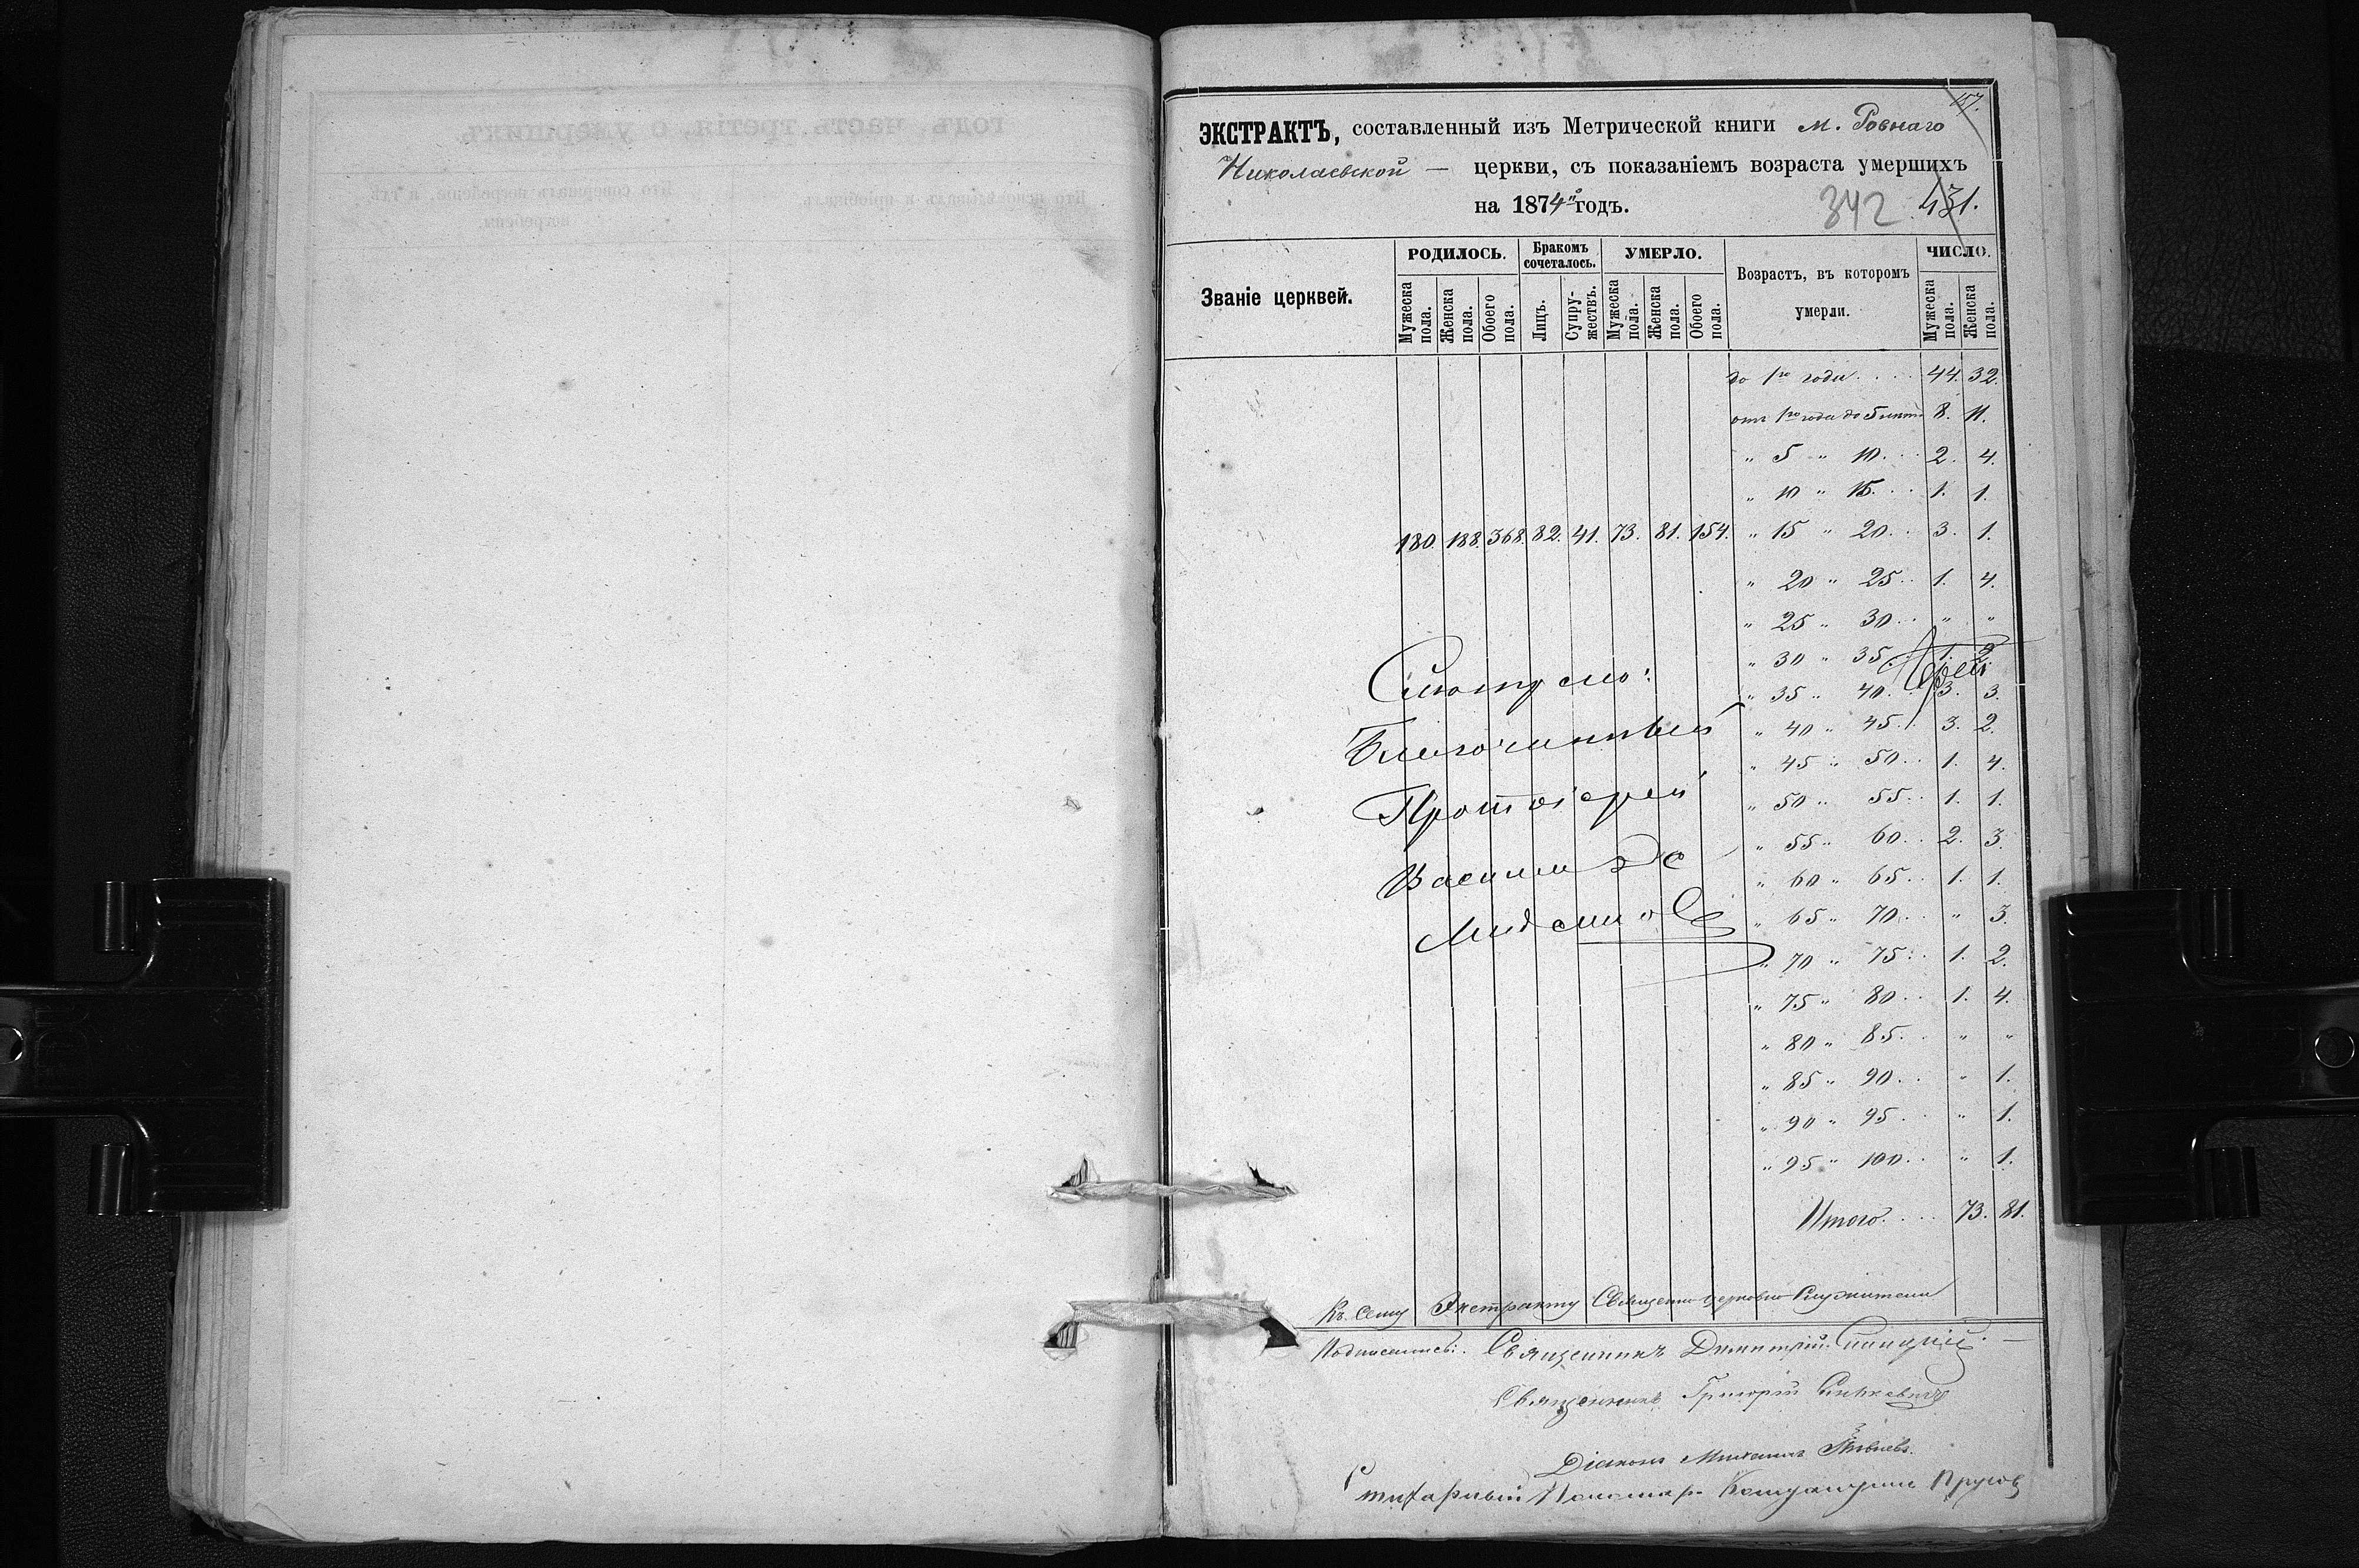 157.
ЭКСТРАКТЪ, составленный изъ Метрической книги м. Ровнаго
Николаевской — церкви, съ показаніемъ возраста умершихъ
на 1874й годъ.
342 431.
Званіе церквей.
РОДИЛОСЬ.
Бракомъ сочеталось.
УМЕРЛО.
Возрастъ, въ которомъ умерли.
ЧИСЛО.
Мужеска пола.
Женска пола.
Обоего пола.
Лицъ.
Супружествъ.
Мужеска пола.
Женска пола.
Обоего пола.
Мужеска пола.
Женска пола.
до 1го года .... 44. 32.
отъ 1го года до 5 лѣтъ 8. 11.
" 5 " 10... 2. 4.
" 10 " 15... 1. 1.
180. 188. 368. 82. 41. 73. 81. 154. " 15 " 20.. 3. 1.
" 20 " 25.. 1. 4.
" 25 " 30.. " "
" 30 " 35.. 1. 2.
" 35 " 40.. 3. 3.
" 40 " 45.. 3. 2.
" 45 " 50.. 1. 4.
" 50 " 55.. 1. 1.
" 55 " 60.. 2. 3.
" 60 " 65.. 1. 1.
" 65 " 70.. " 3.
" 70 " 75.. 1. 2.
" 75 " 80.. 1. 4.
" 80 " 85.. " "
" 85 " 90.. " 1.
" 90 " 95.. " 1.
" 95 " 100.. " 1.
Итого.... 73. 81.
Благочинный
Протоіерей
Василій
Къ сему Экстракту Священно-церковно-служители
подписались: Священникъ Димитрій
Священникъ Григорій
Діаконъ Михаилъ
Стихарный Пономарь